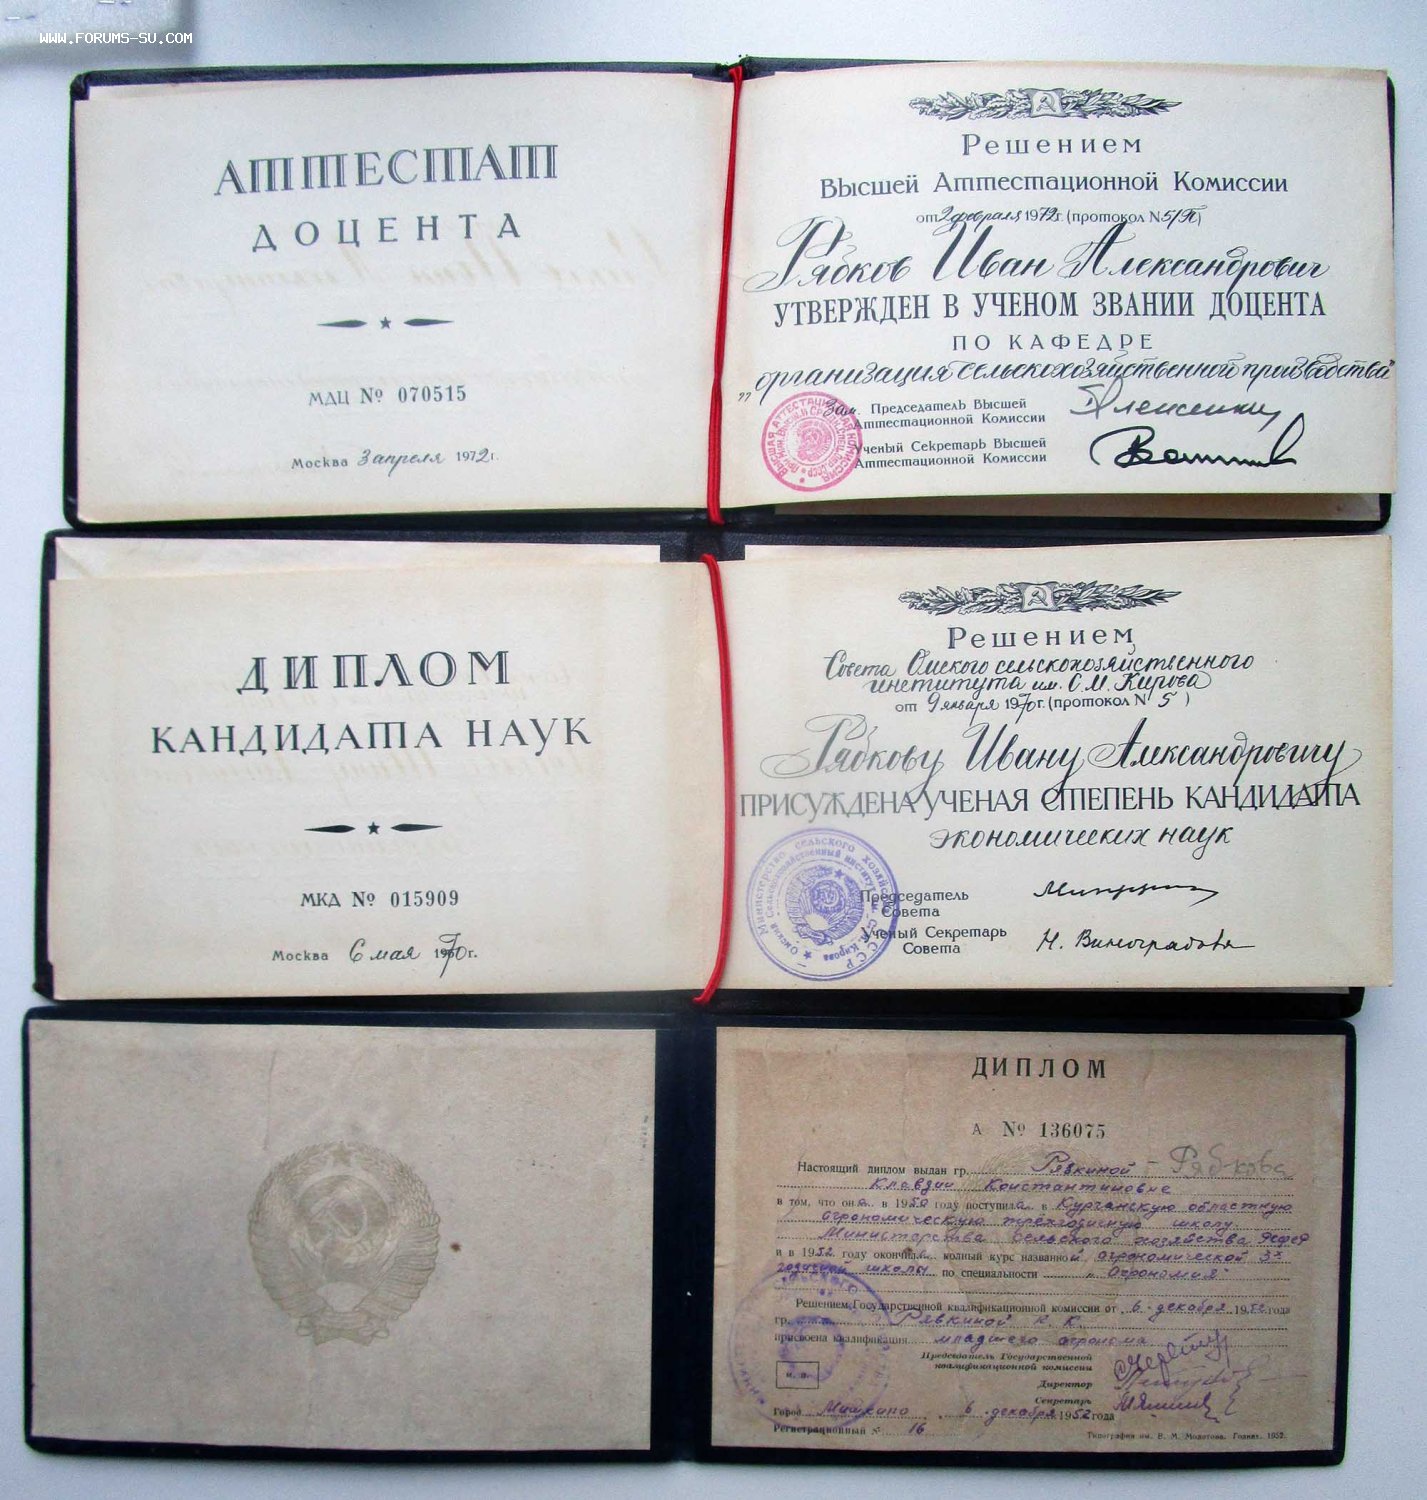 www.forums-su.com
АТТЕСТАТ
ДОЦЕНТА
МДЦ № 070515
Москва 3 апреля 1972г.
Решением
Высшей Аттестационной Комиссии
от 2 февраля 1972г. (протокол N 5/П)
Рябков Иван Александрович
УТВЕРЖДЕН В УЧЕНОМ ЗВАНИИ ДОЦЕНТА
ПО КАФЕДРЕ
„организация сельскохозяйственной производств"
Зам. Председатель Высшей
Аттестационной Комиссии
Ученый Секретарь Высшей
Аттестационной Комиссии
ДИПЛОМ
КАНДИДАТА НАУК
МКД № 015909
Москва 6 мая 1970г.
Решением
Совета Омского сельскохозяйственного
института им. С. М. Кирова
от 9 января 1970г. (протокол N 5 )
Рябкову Ивану Александровичу
ПРИСУЖДЕНА УЧЕНАЯ СТЕПЕНЬ КАНДИДАТА
экономических наук
Председатель
Совета
Ученый Секретарь
Совета
Н. Виноградова
ДИПЛОМ
А № 136075
Настоящий диплом выдан гр. Рявкиной - Рябкова
Клавдии Константиновне
в том, что она в 1950 году поступила в Курганскую областную
агрономическую трехгодичную школу
Министерства сельского хозяйства РСФСР
и в 1952 году окончила полный курс названной агрономической 3х
годичной школы по специальности „Агрономия"
Решением Государственной квалификационной комиссии от 6 декабря 1952 года
гр. Рявкиной К. К.
присвоена квалификация младшего агронома
Председатель Государственной
квалификационной комиссии
Директор
Секретарь
м. п.
Город Мишкино 6 декабря 1952 года
Регистрационный № 16
Типография им. В. М. Молотова. Гознак. 1952.